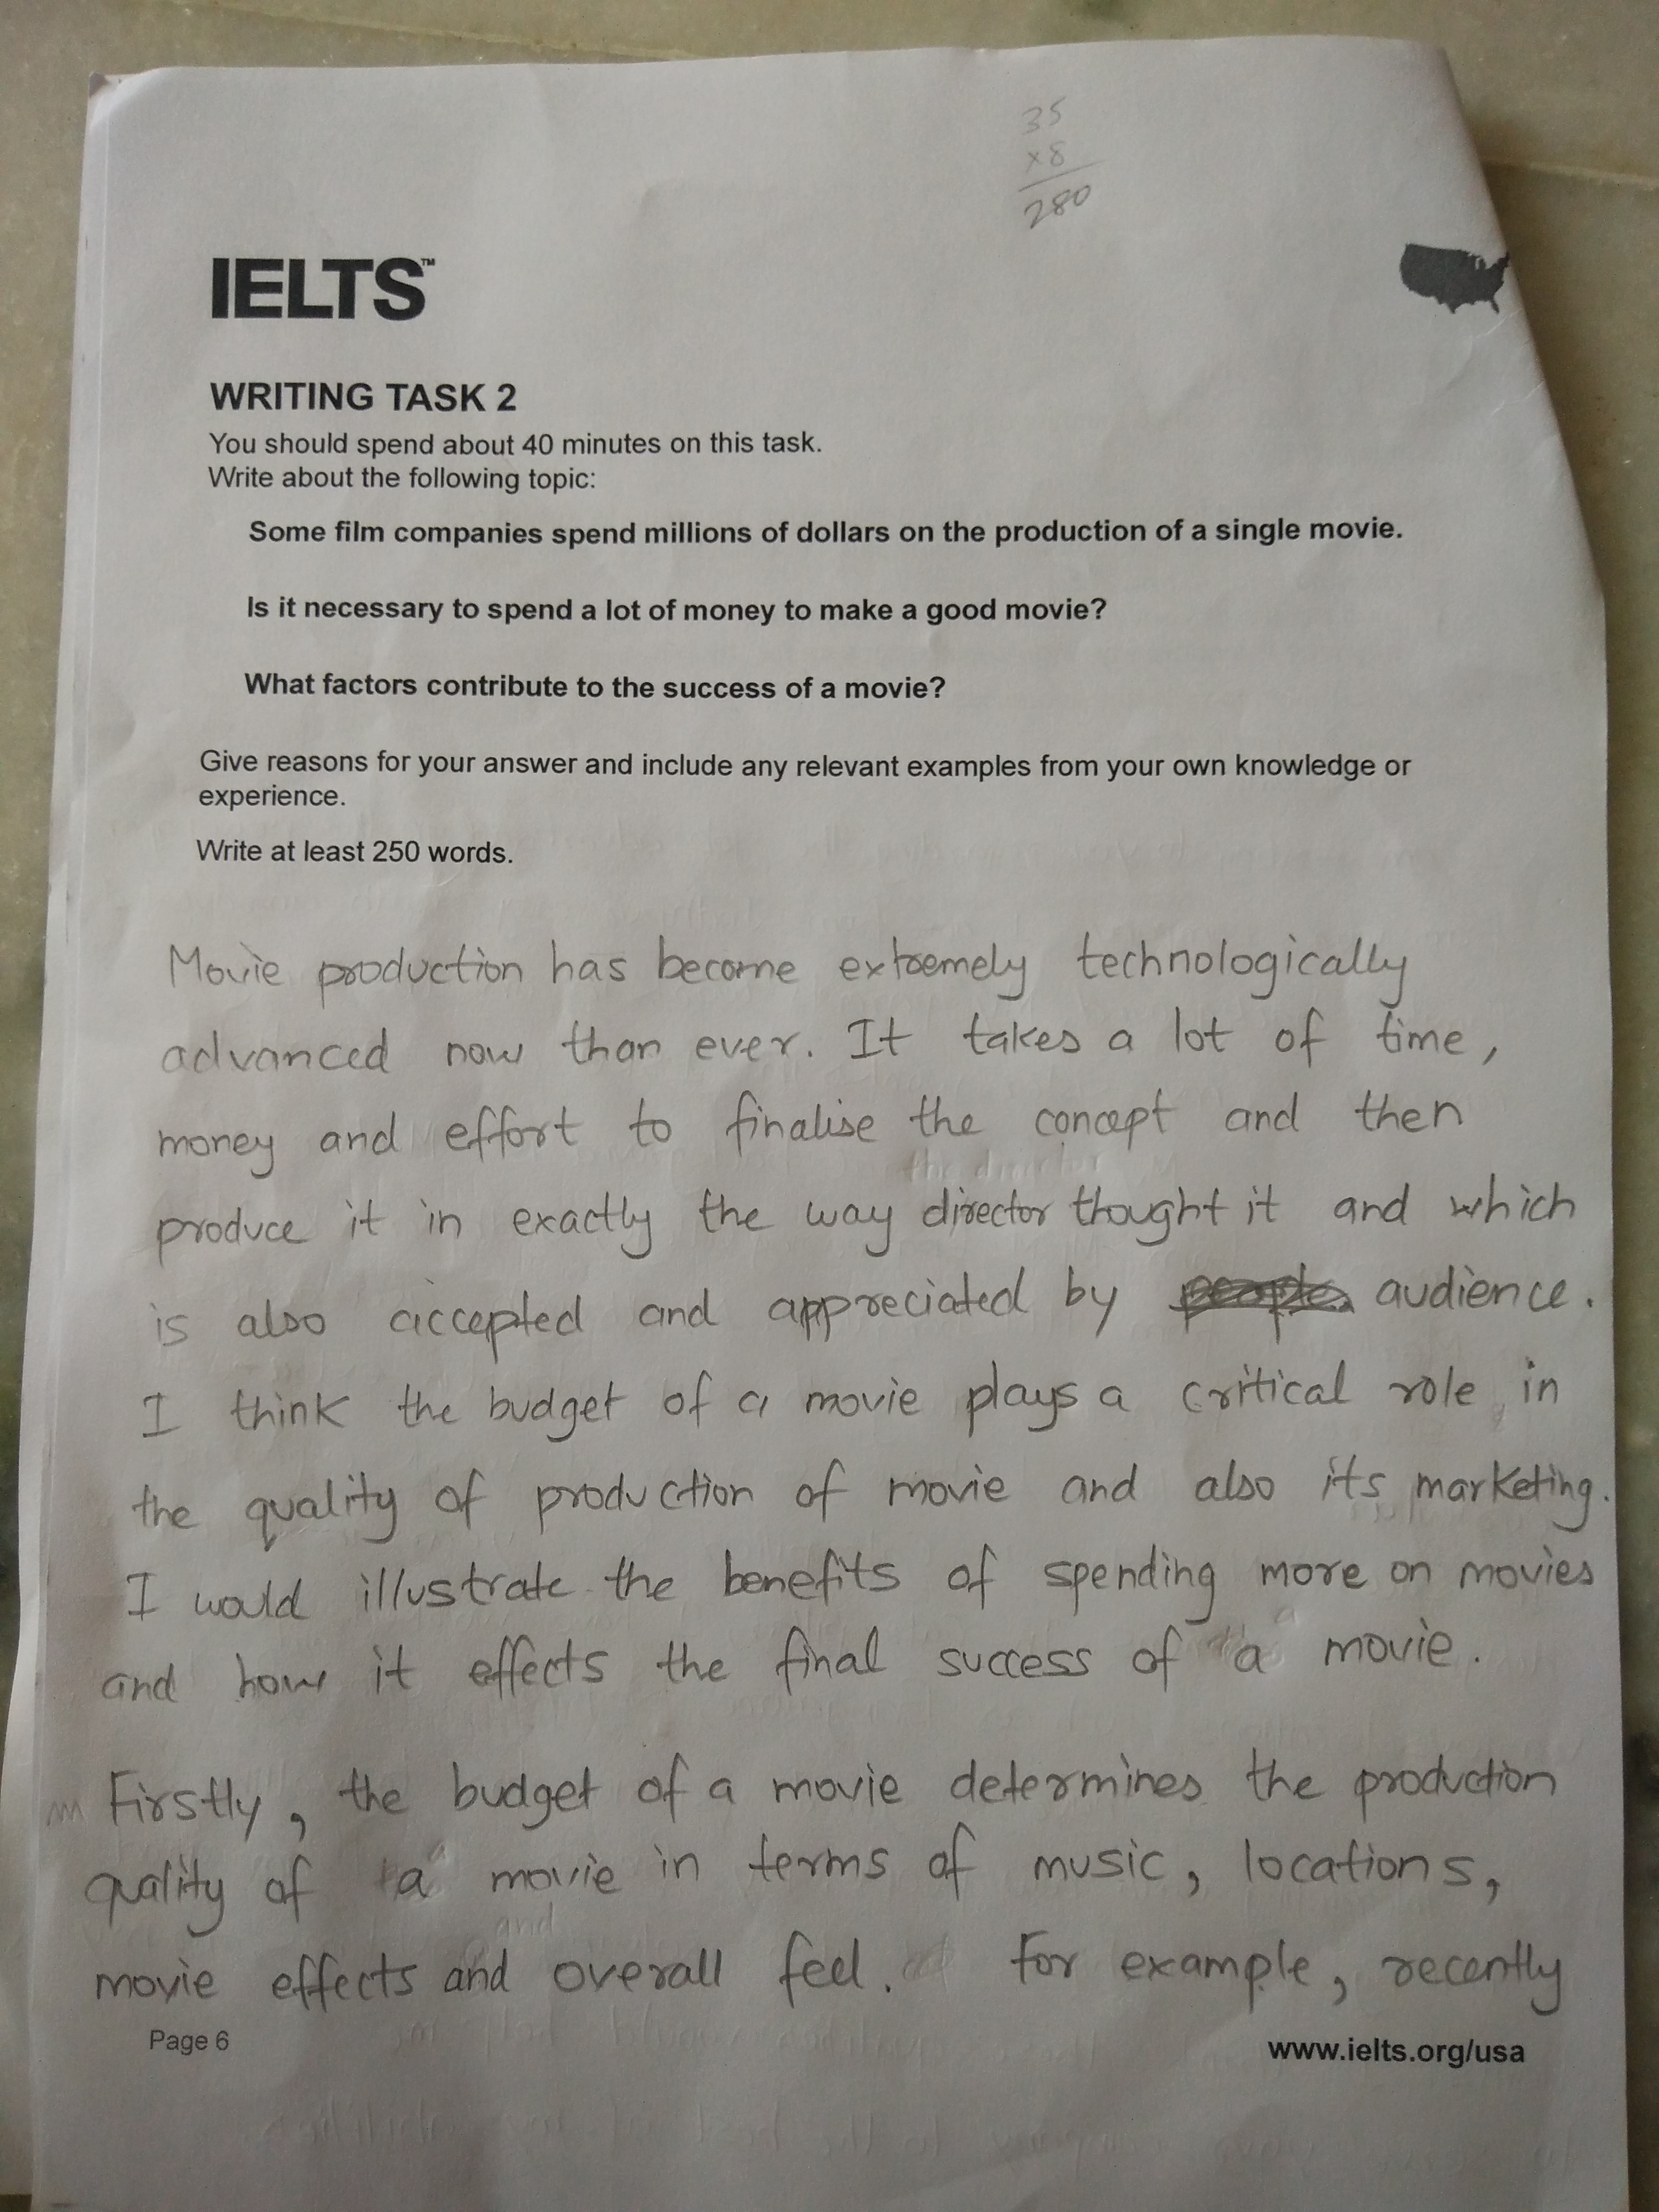 35
x8
280
IELTS™
WRITING TASK 2
You should spend about 40 minutes on this task.
Write about the following topic:
Some film companies spend millions of dollars on the production of a single movie.
Is it necessary to spend a lot of money to make a good movie?
What factors contribute to the success of a movie?
Give reasons for your answer and include any relevant examples from your own knowledge or
experience.
Write at least 250 words.
Movie production has become extremely technologically
advanced now than ever. It takes a lot of time,
money and effort to finalise the concept and then
produce it in exactly the way director thought it and which
is also accepted and appreciated by audience.
I think the budget of a movie plays a critical role in
the quality of production of movie and also its marketing.
I would illustrate the benefits of spending more on movies
and how it effects the final success of a movie.
Firstly, the budget of a movie determines the production
quality of a movie in terms of music, locations,
movie effects and overall feel. For example, recently
Page 6
www.ielts.org/usa